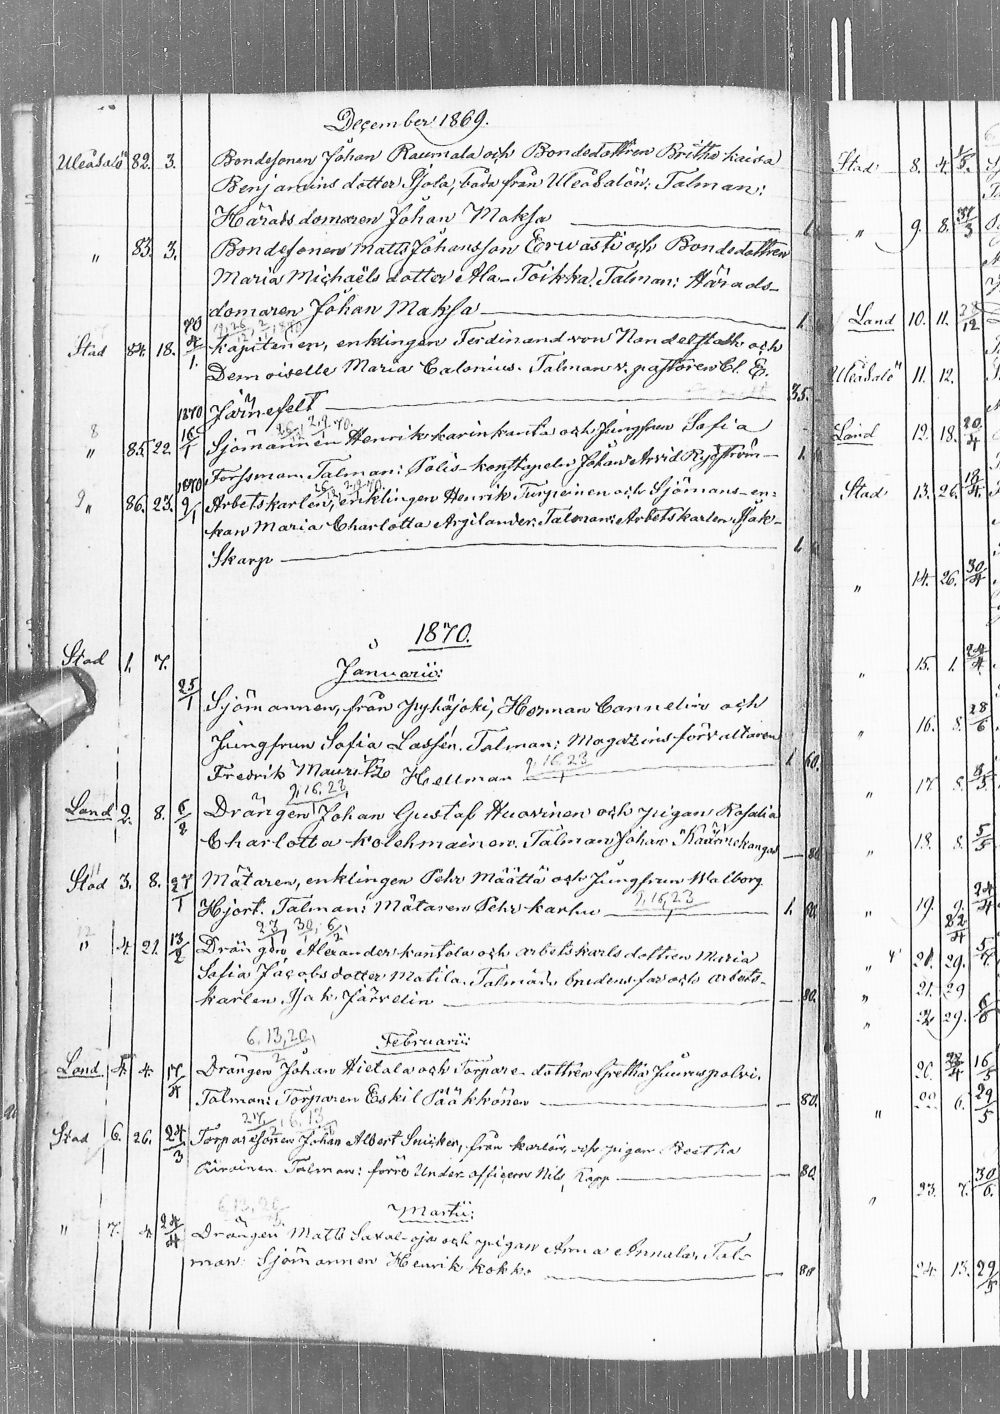 December 1869.
Uleåsalo 82. 3. Bondesonen Johan Raumala och Bondedottren Britha Kaisa
Benjamins dotter Pjola, båda från Uleåsalon; Talman:
Härads domaren Johan Maksa
" 83. 3. Bondesonen Matts Johansson Erwasti och Bondedottren
Maria Michaëls dotter Ala-Toikka; Talman: Härads-
domaren Johan Maksa 1.
Stad 84. 18. 70 4/1. Kapitenen, enklingen Ferdinand von Nandelstadt och
Demoiselle Maria Calonius. Talman v. pastoren Cl. E.
Järnefelt 35.
" 85. 22. 1870 16/1 Sjömannen Henrik Karinkanta och Jungfrun Sofia
Forssman. Talman: Polis-konstapeln Johan Arvid Rydström 1.
" 86. 23. 1870 9/1 Arbetskarlen, enklingen Henrik Turpeinen och Sjömans-en-
kan Maria Charlotta Argilander. Talman: Arbetskarlen Isak
Skarp 1.
1870.
Stad 1. 7. Januarii:
25/1 Sjömannen, från Pyhäjoki, Herman Cannelin och
Jungfrun Sofia Lassén. Talman: Magazins-förvaltaren
Fredrik Mauritz Hellman 9, 16, 23/1 1 60.
9, 16, 23
Land 2. 8. 6/2 Drängen Johan Gustaf Huovinen och pigan Rosalia
Charlotta Kolehmainen. Talman Johan Kaarrekangas 80
Stad 3. 8. 27/1 Mätaren, enklingen Pehr Määttä och Jungfrun Walborg
Hjort. Talman: Mätaren Pehr Karhu 9, 16, 23 1. 60.
23, 30, 6/2
" 4. 21. 13/2 Drängen Alexander Kantola och arbetskarls dottren Maria
Sofia Jacobsdotter Matila. Talman: brudens far och arbets-
karlen Isak Järvelin 80.
6, 13, 20/2 Februarii:
Land 5. 4. 17/4 Drängen Johan Hietala och Torpare-dottren Gretha Juuruspolvi.
Talman: Torparen Eskil Pääkkönen 80.
27/2, 6, 13
Stad 6. 26. 24/3 Torparesonen Johan Albert Snicker, från Karlön, och pigan Beetha
Talman: förre Under-officern Nils Rapp 80.
6, 13, 20 Martii:
" 7. 4. 24/4 Drängen Matts Saxalioja och pigan Anna Annala, Tal-
man: Sjömannen Henrik Kokko 80
Stad 8. 4. 1/5.
" 9. 8. 31/3
Land 10. 11. 28/12
Uleåsalo 11. 12.
Land 12. 18. 20/4
Stad 13. 26. 18/4.
" 14. 26. 30/4
" 15. 1. 24/4.
" 16. 8. 28/6
" 17. 8. 8/5
" 18. 8. 5/5
" 19. 9. 24/4
22/4
" 20. 29. 5/7.
" 21. 29
" 22. 29. 6/6
20. 16/5
" 22. 6. 29/5
" 23. 7. 30/6.
24. 13. 29/5